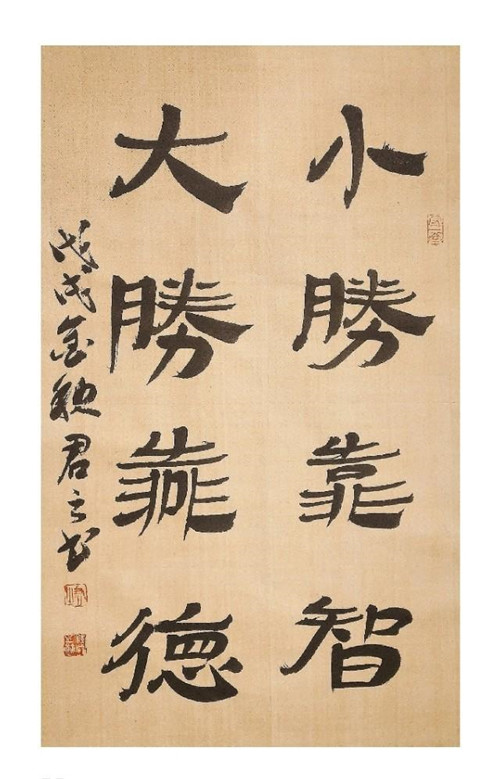 小勝靠智
大勝靠德
戊戌金君之书